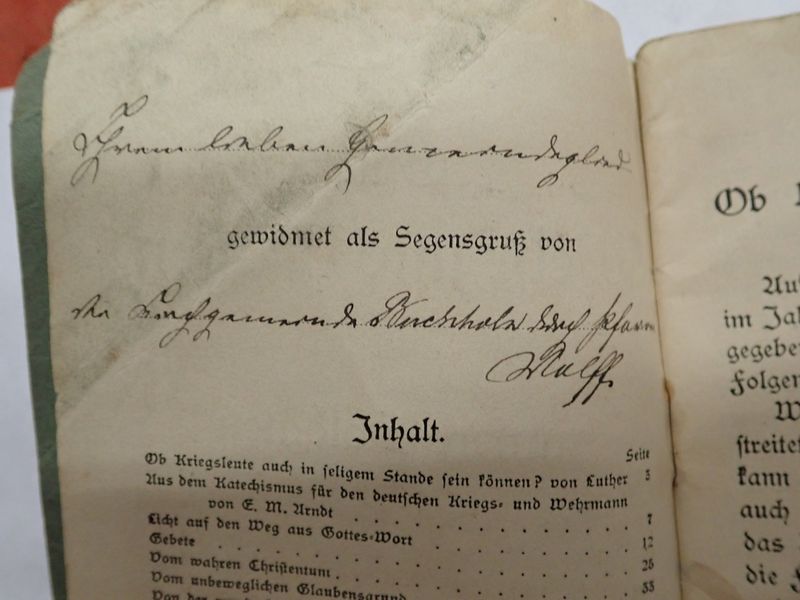 Ihrem lieben Gemeindeglied
gewidmet als Segensgruß von
der Kirchgemeinde Buchholz durch Pfarrer
Wolff.
Inhalt.
Seite
Ob Kriegsleute auch in seligem Stande sein können? von Luther 3
Aus dem Katechismus für den deutschen Kriegs- und Wehrmann
von E. M. Arndt . . . . . . . . . . . . 7
Licht auf den Weg aus Gottes-Wort . . . . . . . . 12
Gebete . . . . . . . . . . . . . . . . 25
Vom wahren Christentum . . . . . . . . . . . 33
Vom unbeweglichen Glaubensgrund
Von der
Ob
Au
im Ja
gegebe
Folgen
W
streite
kann
auch
das
die